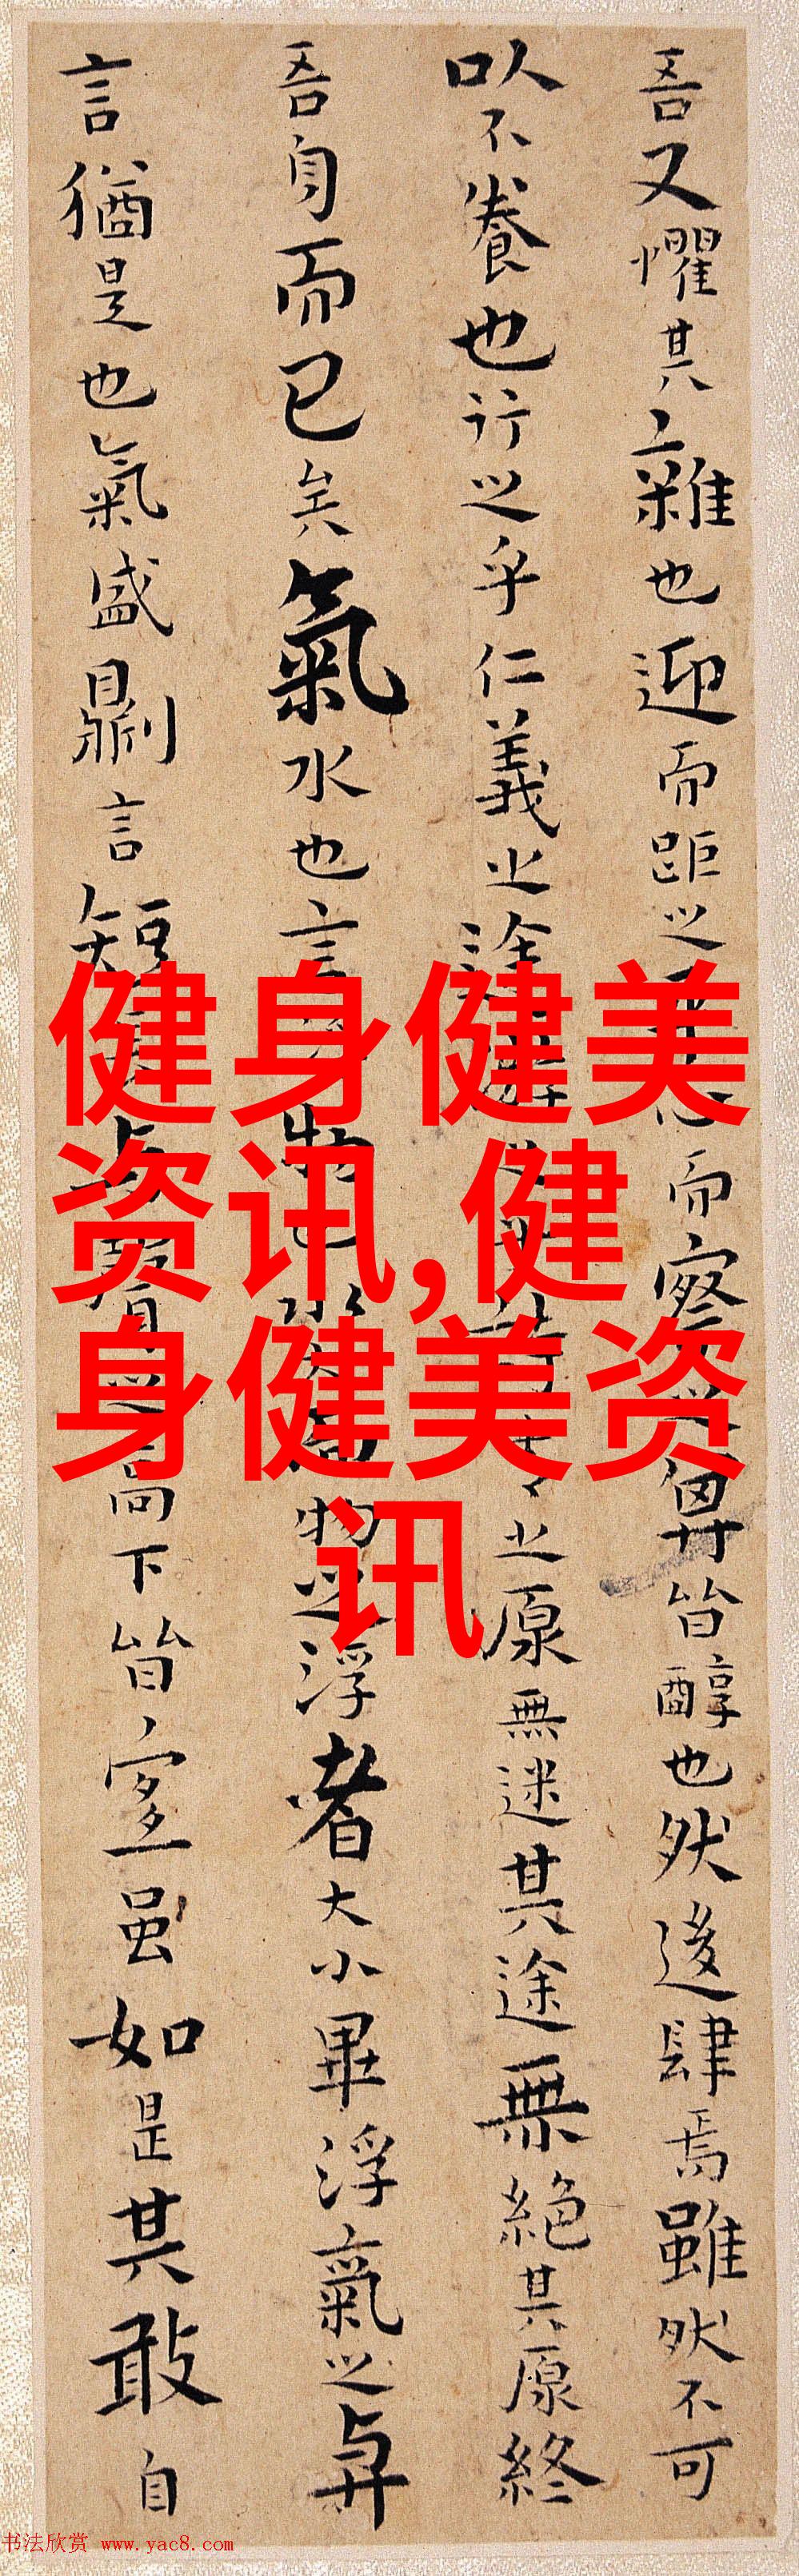 吾又懼其雜也迎而距之心而察其皆醇也然後肆焉雖然不可
以不養也行之乎仁義之途之原無迷其途無絕其原終
吾身而已矣氣水也言物也水物之浮者大小畢浮氣之與
言猶是也氣盛則言短與之高下皆宜雖如是其敢自
健身健美
资讯,健
身健美资
讯
书法欣赏 www.yac8.com